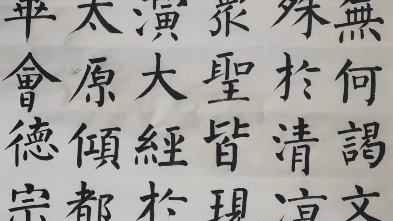 無何謁文
殊於清涼
衆聖皆現
演大經於
太原傾都
畢會德宗